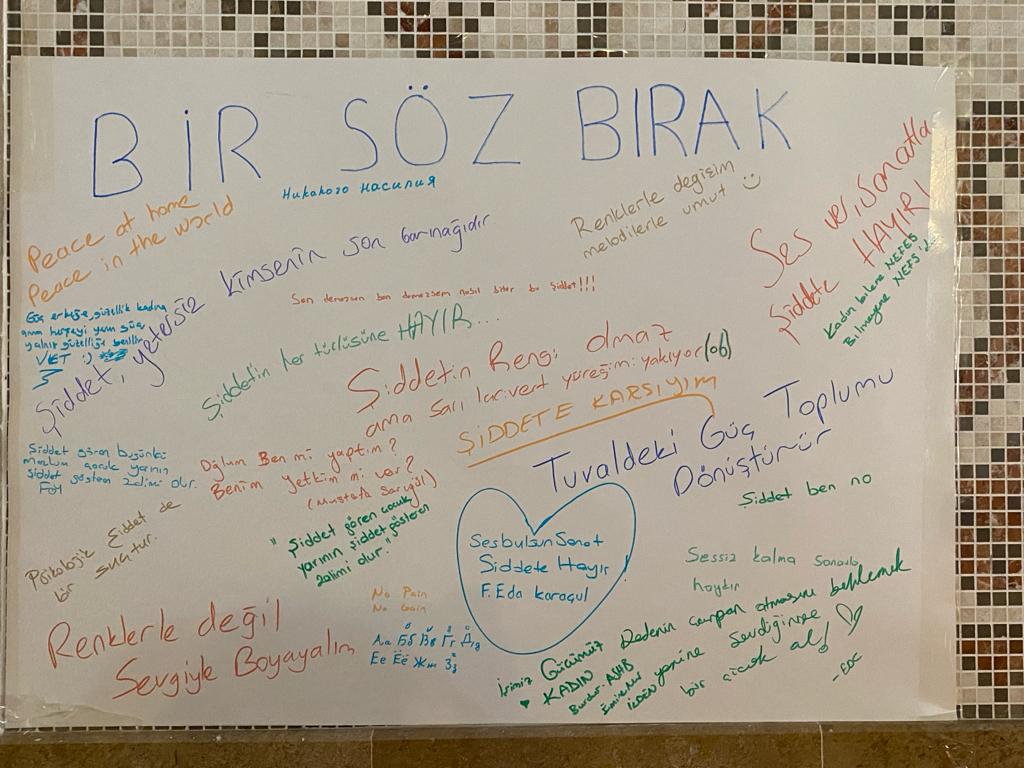 BİR SÖZ BIRAK
Никакого насилия
Peace at home
Peace in the world
Renklerle değişim
melodilerle umut
Ses ver, Sanatla
Şiddete HAYIR!
Kadın bilene NEFES
Bilmeyene NEFS'd
Şiddet, yetersiz kimsenin son barınağıdır
Güç erkeğe, güzellik kadına
yalnız güzelliğe
VET :)
Sen demezsen ben demezsem nasıl biter bu şiddet!!!
Şiddetin her türlüsüne HAYIR...
Şiddetin Rengi olmaz
ama Sarı lacivert yüreğimi yakıyor (ob)
ŞİDDETE KARŞIYIM
Tuvaldeki Güç Toplumu
Dönüştürür
Şiddet gören bugünkü
Mazlum çocuk yarının
şiddet gösteren zalimi olur.
Oğlum Ben mi yaptım?
Benim yetkim mi var?
(Mustafa Sarıgül)
Psikolojik Şiddet de
bir suçtur.
"Şiddet gören çocuk
yarının şiddet gösteren
zalimi olur."
Sesbulsun Sanat
Şiddete Hayır
F. Eda Karaçul
Şiddet ben no
Sessiz kalma Sanatla
haydır
No Pain
No Gain
Аа Бб Вв Гг Д
Ее Ёё Жж Зз
Renklerle değil
Sevgiyle Boyayalım
Gücünüz bedenin çarpan atmasını beklemek
KADIN yerine Sevdiğinize
bir çicek al!
Burdur - ASHB
- EDC